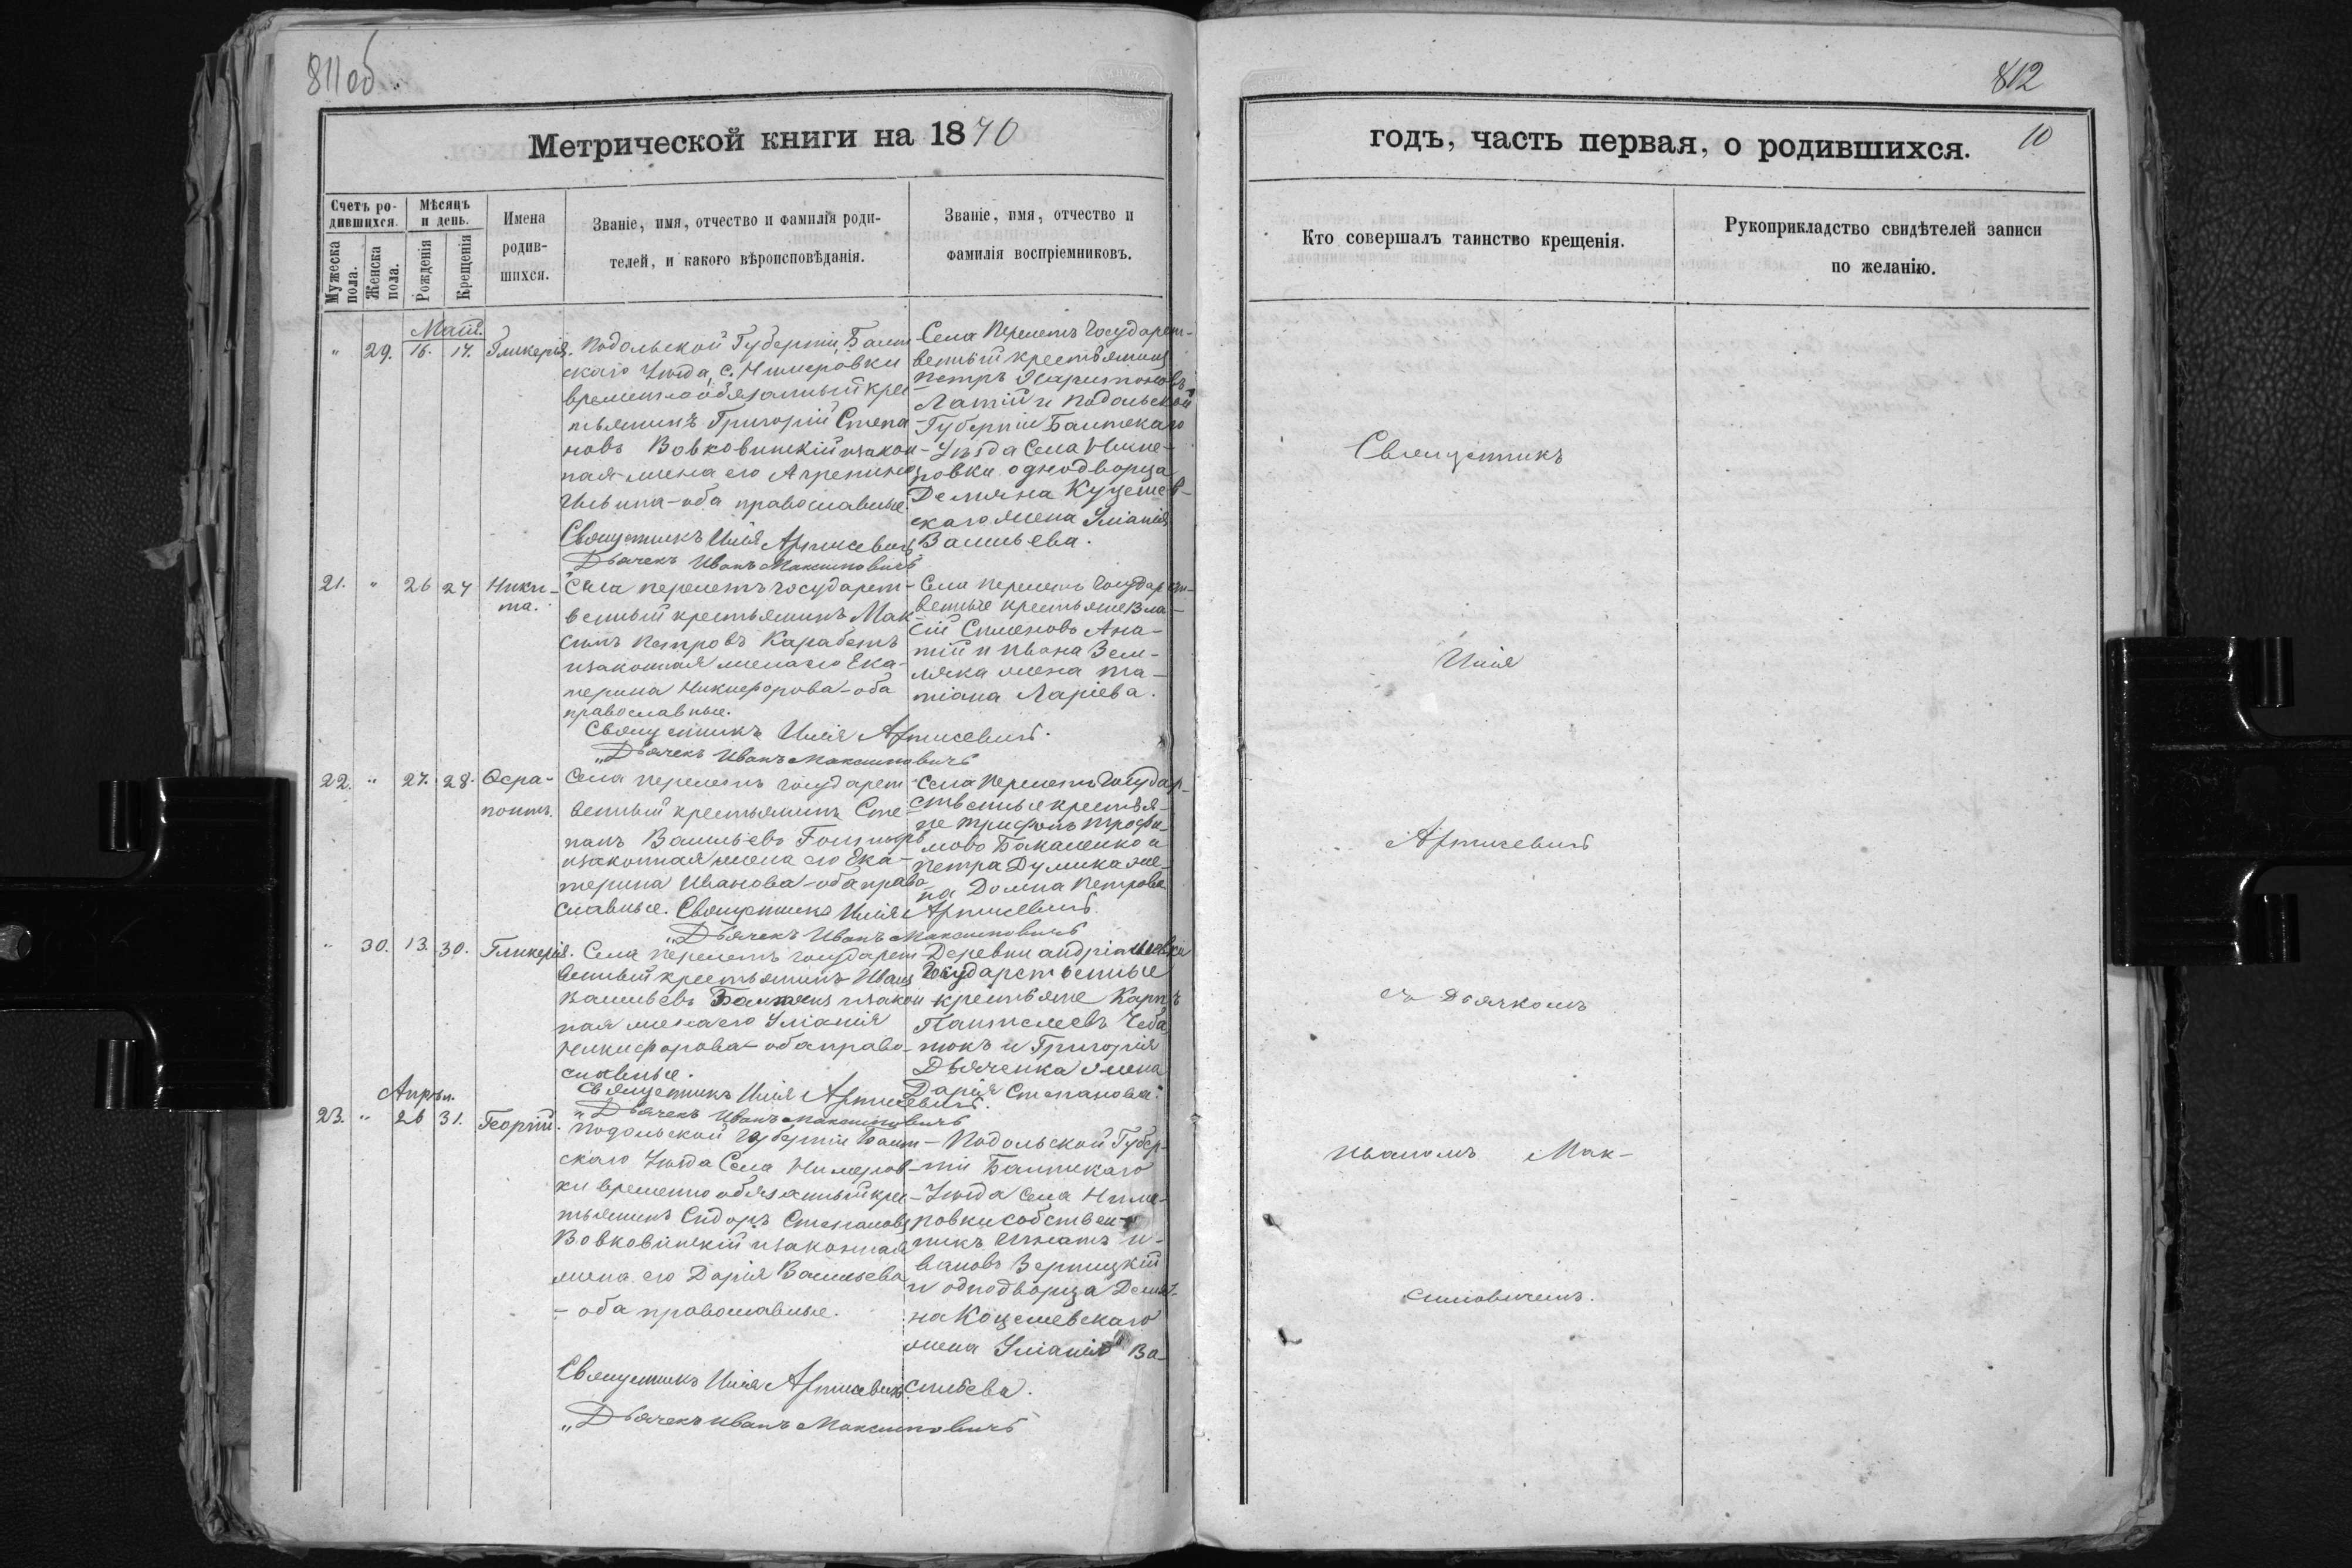 811 об
812
Метрической книги на 1870
годъ, часть первая, о родившихся.
10
Счетъ родившихся.
Мужеска пола.
Женска пола.
Мѣсяцъ и день.
Рожденія
Крещенія
Имена родив-
шихся.
Званіе, имя, отчество и фамилія роди-
телей, и какого вѣроисповѣданія.
Званіе, имя, отчество и
фамилія воспріемниковъ.
Кто совершалъ таинство крещенія.
Рукоприкладство свидѣтелей записи
по желанію.
Май.
" 29. 16. 17. Гликерія.
Подольской Губерніи, Балт
скаго Уѣзда, с. Нимеровки
временно обязанный крес
тьянинъ Григорій Степа
новъ Вовковинскій и закон
ная жена его Агрепина
Ильина - оба православные.
Священникъ Илія Артисевичъ
Дьячекъ Иванъ Максимовичъ
Села Перелетъ Государст-
венный крестьянинъ
Петръ Харитоновъ
Латій и Подольской
Губерніи Балтскаго
Уѣзда Села Ниме-
ровки однодворца
Демяна Куцешев-
скаго жена Уліанія
Васильева.
21. " 26 27 Ники-
та.
Села перелетъ государст-
венный крестьянинъ Мак-
симъ Петровъ Карабетъ
и законная жена его Ека-
терина Никифорова - оба
православные.
Священникъ Илія Артисевичъ.
"Дьячекъ Иванъ Максимовичъ
Села Перелетъ Государст-
венные крестьяне Вла-
сій Сименовъ Ана-
тій и Ивана Зем-
ляка жена Та-
тіана Ларіева.
22. " 27. 28. Фера-
понтъ.
Села Перелетъ государст
венный крестьянинъ Сте-
панъ Васильевъ
и законная жена его Ека-
терина Иванова - оба право
славные. Священникъ Илія Артисевичъ.
"Дьячекъ Иванъ Максимовичъ
Села Перелетъ Государ-
ственные крестья-
не Трифонъ Трофи-
мовъ Бакаленко и
Петра Думика же-
на Домна Петрова
" 30. 13. 30. Гликерія.
Села Перелетъ государст
венный крестьянинъ Иванъ
Васильевъ и закон
ная жена его Уліанія
Никифорова - оба право-
славные.
Священникъ Илія Артисевичъ.
"Дьячекъ Иванъ Максимовичъ
Деревни Андріяшевки
Государственные
крестьяне Карпъ
Пантелеевъ Чеба
нюкъ и Григорія
Дьяченка жена
Дарія Степанова.
Апрѣл.
23. " 26 31. Георгій.
Подольской Губерніи Балт-
скаго Уѣзда Села Нимеров-
ки временно обязанный крес-
тьянинъ Сидоръ Степановъ
Вовковинскій и законная
жена его Дарія Васильева
- оба православные.
Священникъ Илія Артисевичъ.
"Дьячекъ Иванъ Максимовичъ
Подольской Губер-
ніи Балтскаго
Уѣзда Села Ниме-
ровки собствен-
никъ Игнатъ И-
вановъ Вермицкій
и однодворца Демя-
на Коцешевскаго
жена Уліанія Ва-
сильева.
Священникъ
Илія
Артисевичъ
съ Дьячкомъ
Иваномъ Мак-
симовичемъ.